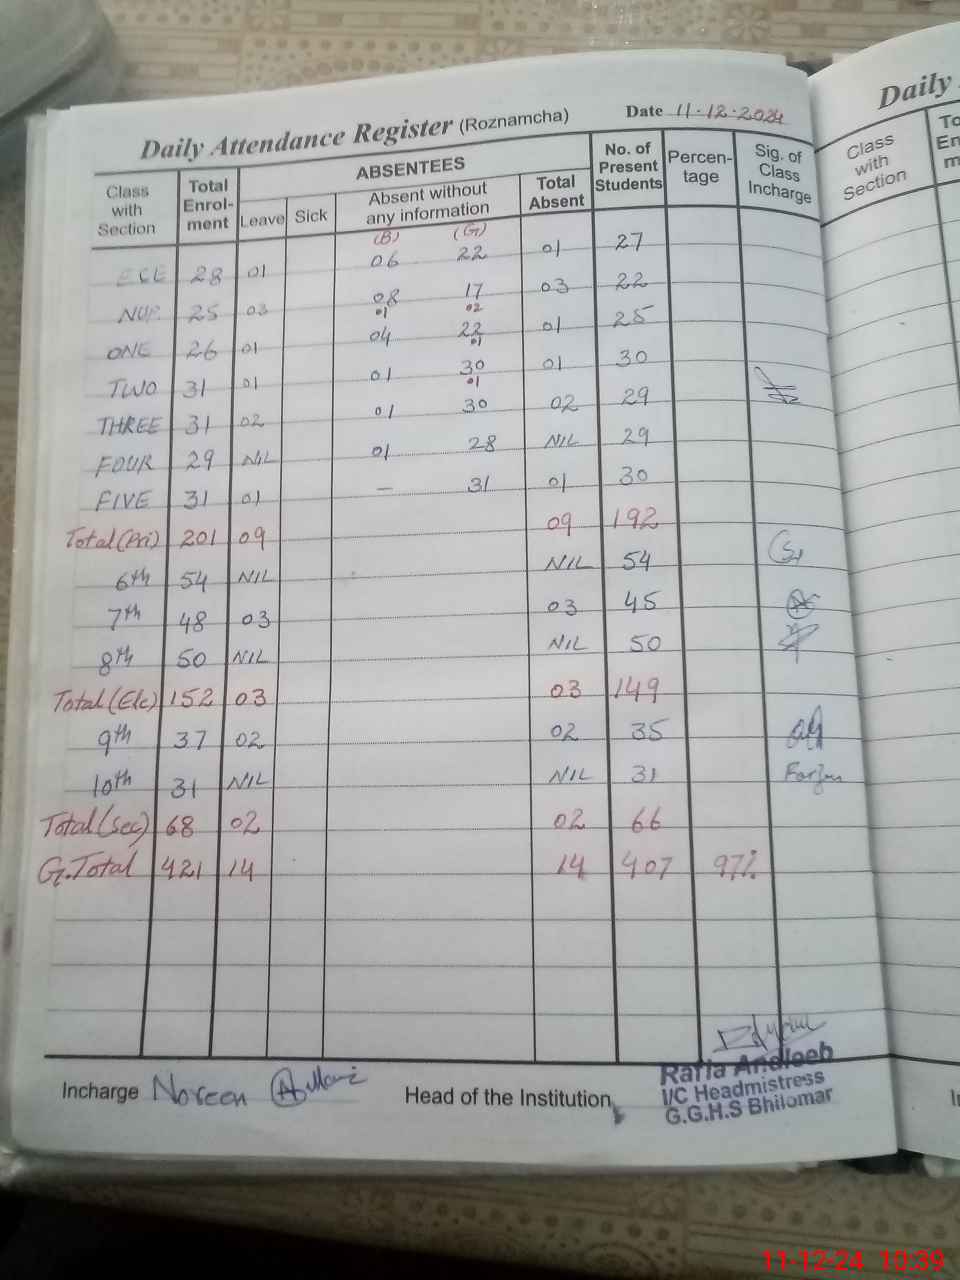 Daily Attendance Register (Roznamcha) Date 11-12-2024
Class with Section | Total Enrol-ment | ABSENTEES | No. of Present Students | Percen-tage | Sig. of Class Incharge
Leave | Sick | Absent without any information | Total Absent
(B) (G)
ECE 28 01 06 22 01 27
NUR 25 03 08 17 03 22
01 02
ONE 26 01 04 22 01 25
01
TWO 31 01 01 30 01 30
01
THREE 31 02 01 30 02 29
FOUR 29 NIL 01 28 NIL 29
FIVE 31 01 — 31 01 30
Total(Pri) 201 09 09 192
6th 54 NIL NIL 54
7th 48 03 03 45
8th 50 NIL NIL 50
Total(Ele) 152 03 03 149
9th 37 02 02 35
10th 31 NIL NIL 31
Total(Sec) 68 02 02 66
G.Total 421 14 14 407 97%
Incharge Noreen
Head of the Institution
Rafia Andleeb
I/C Headmistress
G.G.H.S Bhilomar
Daily
Class with Section
11-12-24 10:39